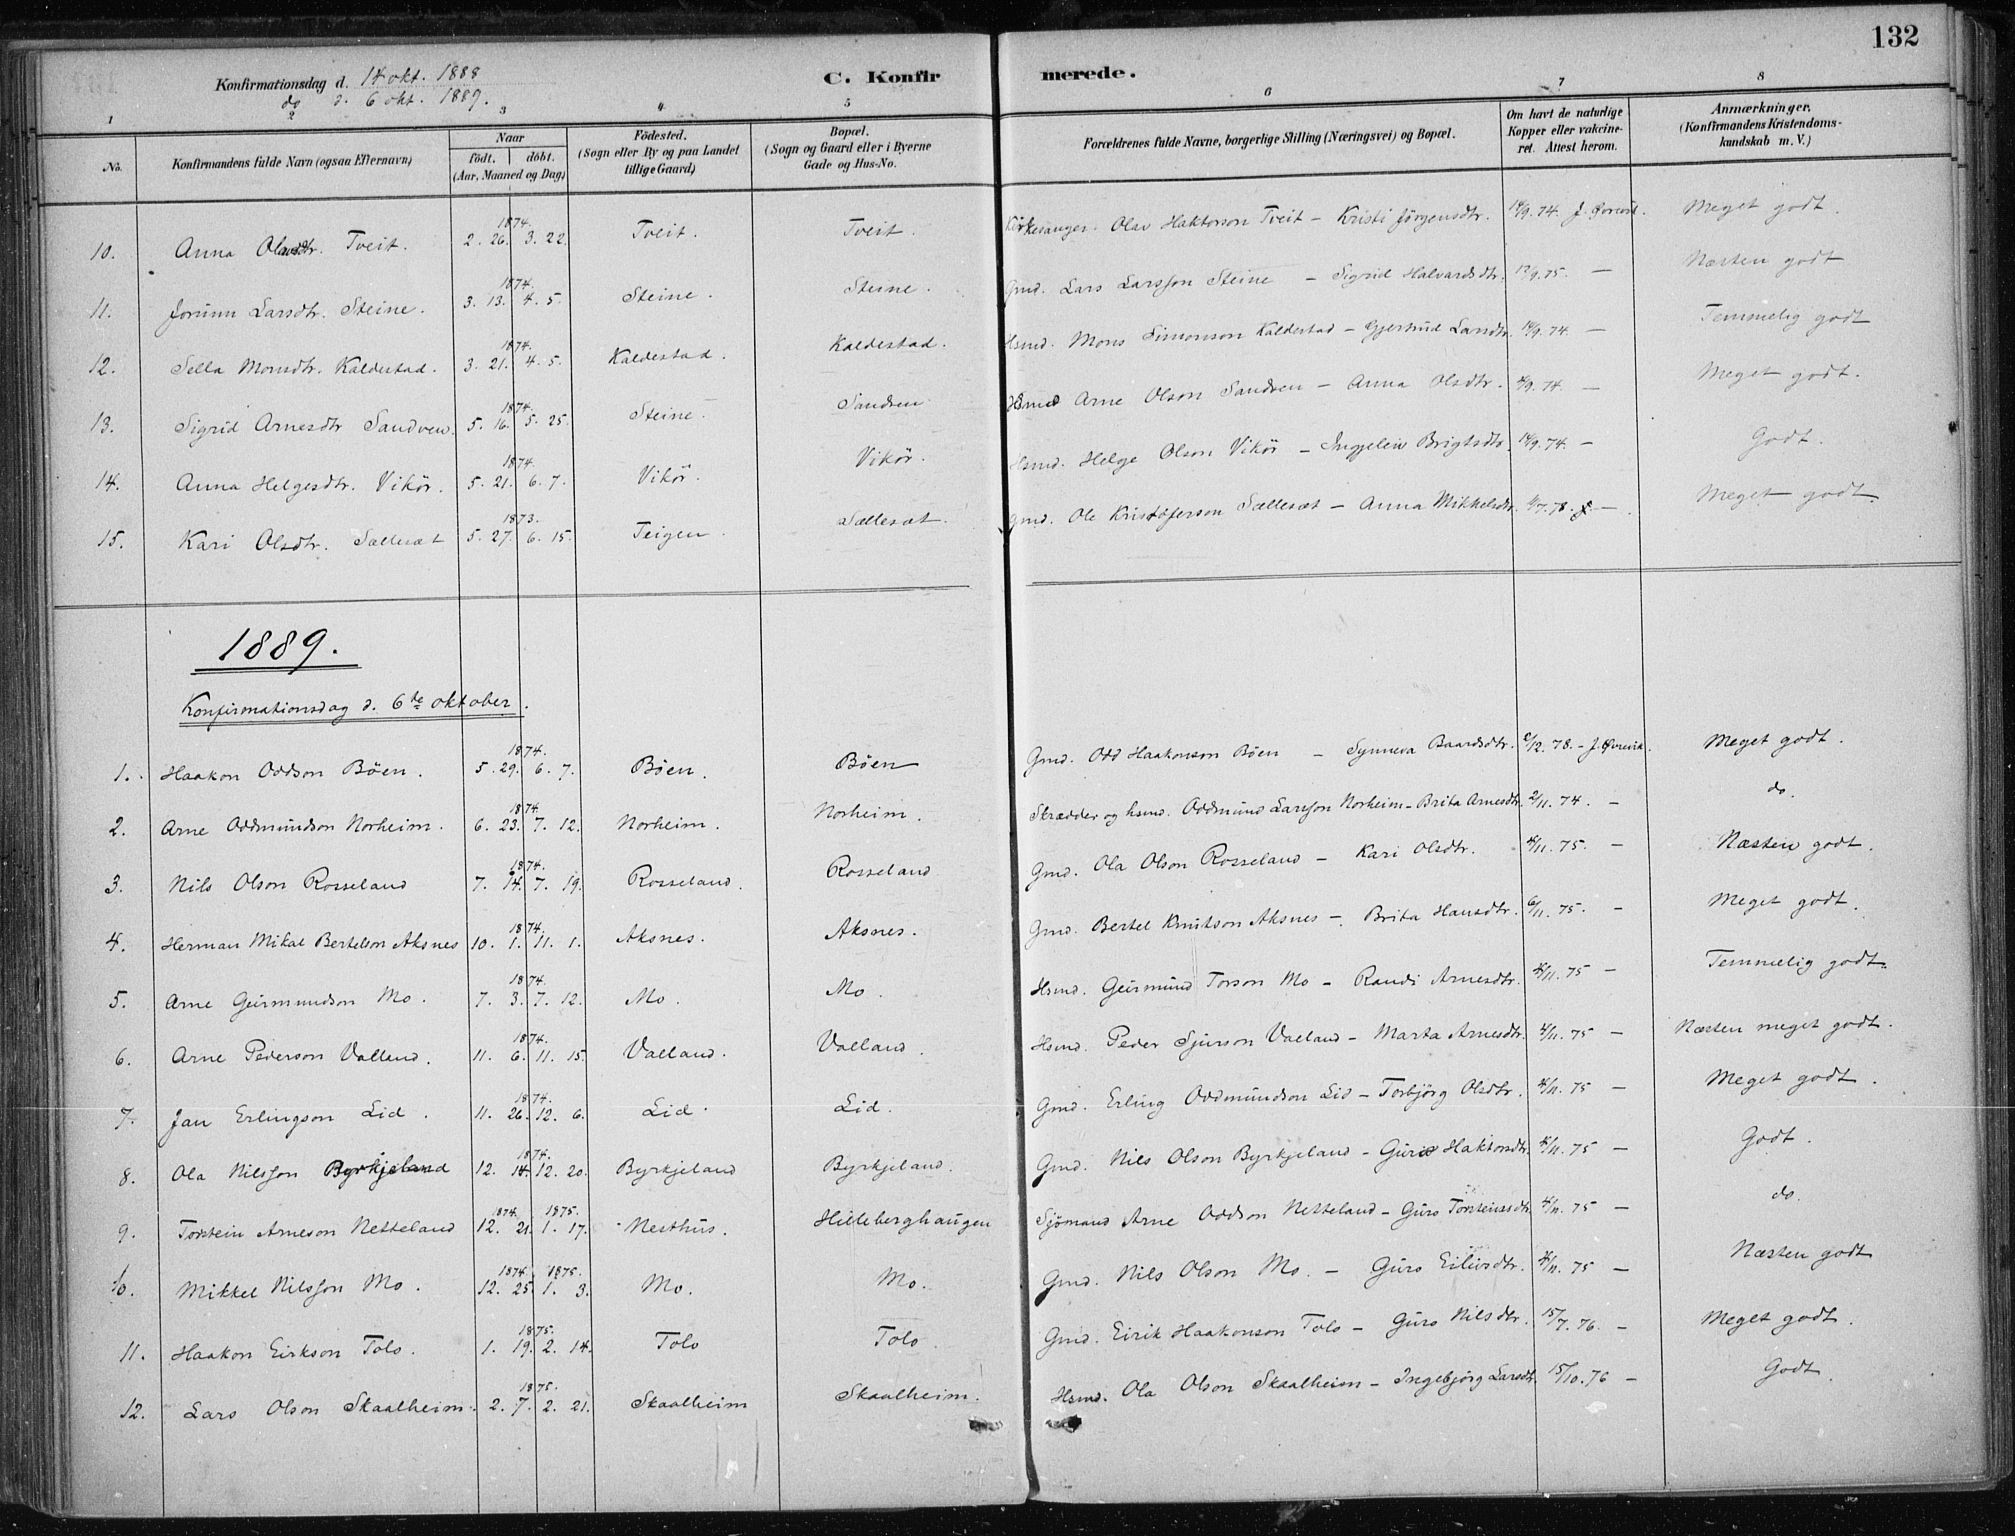 132
Konfirmationsdag d. 14 okt. 1888
do d. 6 okt. 1889.
C. Konfirmerede.
1 2 3 4 5 6 7 8
No. Konfirmandens fulde Navn (ogsaa Efternavn) Naar født. døbt. (Aar, Maaned og Dag) Fødested. (Sogn eller By og paa Landet tillige Gaard) Bopæl. (Sogn og Gaard eller i Byerne Gade og Hus-No. Forældrenes fulde Navne, borgerlige Stilling (Næringsvei) og Bopæl. Om havt de naturlige Kopper eller vakcineret. Attest herom. Anmærkninger. (Konfirmandens Kristendomskundskab m. V.)
10. Anna Olavsdtr. Tveit. 1874. 2. 26. 3. 22. Tveit. Tveit. Kirkesanger. Olav Haktorson Tveit - Kristi Jörgensdtr. 14/9. 74. J. Övrevik. Meget godt.
11. Jorunn Larsdtr. Steine. 1874. 3. 13. 4. 5. Steine. Steine. Gmd. Lars Larsson Steine - Sigrid Halvardsdtr. 12/9. 75. - Næsten godt
12. Sella Monsdtr. Kaldestad. 1874. 3. 21. 4. 5. Kaldestad. Kaldestad. Hsmd. Mons Simonson Kaldestad - Gjertrud Larsdtr. 14/9. 74. - Temmelig godt
13. Sigrid Arnesdtr Sandven. 1874. 5. 16. 5. 25. Steine. Sandven Hsmd Arne Olson Sandven - Anna Olsdtr. /9. 74. - Meget godt.
14. Anna Helgesdtr. Vikör. 1874. 5. 21. 6. 7. Vikör. Vikör. Hsmd. Helge Olson Vikör - Ingjeleiv Brigtsdtr. 14/9. 74. - Godt.
15. Kari Olsdtr. Sællesæt 1873. 5. 27. 6. 15. Teigen. Sællesæt. Gmd. Ole Kristoferson Sællesæt - Anna Mikkelsdtr. /7. 78. - Meget godt.
1889.
Konfirmationsdag d. 6te oktober.
1. Haakon Oddson Böen. 1874. 5. 29. 6. 7. Böen. Böen Gmd. Odd Haakonson Böen - Synneva Baardsdtr. /12. 78. - J. Övrevik. Meget godt.
2. Arne Oddmundson Norheim. 1874. 6. 23. 7. 12. Norheim. Norheim. Skrædder og hsmd. Oddmund Larsson Norheim - Brita Arnesdtr. 2/11. 74. - do.
3. Nils Olson Rosseland 1874. 7. 14. 7. 19. Rosseland. Rosseland Gmd. Ola Olson Rosseland - Kari Olsdtr. 4/11. 75. - Næsten godt.
4. Herman Mikal Bertelson Aksnes 1874. 10. 1. 11. 1. Aksnes. Aksnes. Gmd. Bertel Knutson Aksnes - Brita Hansdtr. 6/11. 75. - Meget godt.
5. Arne Geirmundson Mo. 1874. 7. 3. 7. 12. Mo. Mo. Hsmd. Geirmund Torson Mo - Randi Arnesdtr. 4/11. 75 - Temmelig godt.
6. Arne Pederson Valland. 1874. 11. 6. 11. 15. Valland. Valland. Hsmd. Peder Sjurson Valland - Marta Arnesdtr. 4/11. 75 - Næsten meget godt.
7. Jan Erlingson Lid. 1874. 11. 26. 12. 6. Lid. Lid. Gmd. Erling Oddmundson Lid - Torbjörg Olsdtr. 4/11. 75 - Meget godt.
8. Ola Nilsson Byrkjeland 1874. 12. 14. 12. 20. Byrkjeland Byrkjeland. Gmd. Nils Olson Byrkjeland - Guro Haktorsdtr. 4/11. 75 - Godt.
9. Torstein Arneson Netteland 1874. 1875. 12. 21. 1. 17. Nesthus. Hilleberghaugen Sjömand Arne Oddson Netteland - Guro Torsteinsdtr. 4/11. 75 - do.
10. Mikkel Nilsson Mo. 1874. 1875. 12. 25. 1. 3. Mo. Mo. Gmd. Nils Olson Mo. - Guro Eilivsdtr. 4/11. 75 - Næsten godt
11. Haakon Eirkson Tolo. 1875. 1. 19. 2. 14. Tolo Tolo Gmd. Eirik Haakonson Tolo - Guro Nilsdtr. 15/7. 76. - Meget godt.
12. Lars Olson Skaalheim. 1875. 2. 7. 2. 21. Skaalheim Skaalheim. Hsmd. Ola Olson Skaalheim - Ingebjörg Larsdtr. 15/10. 76 - Godt.